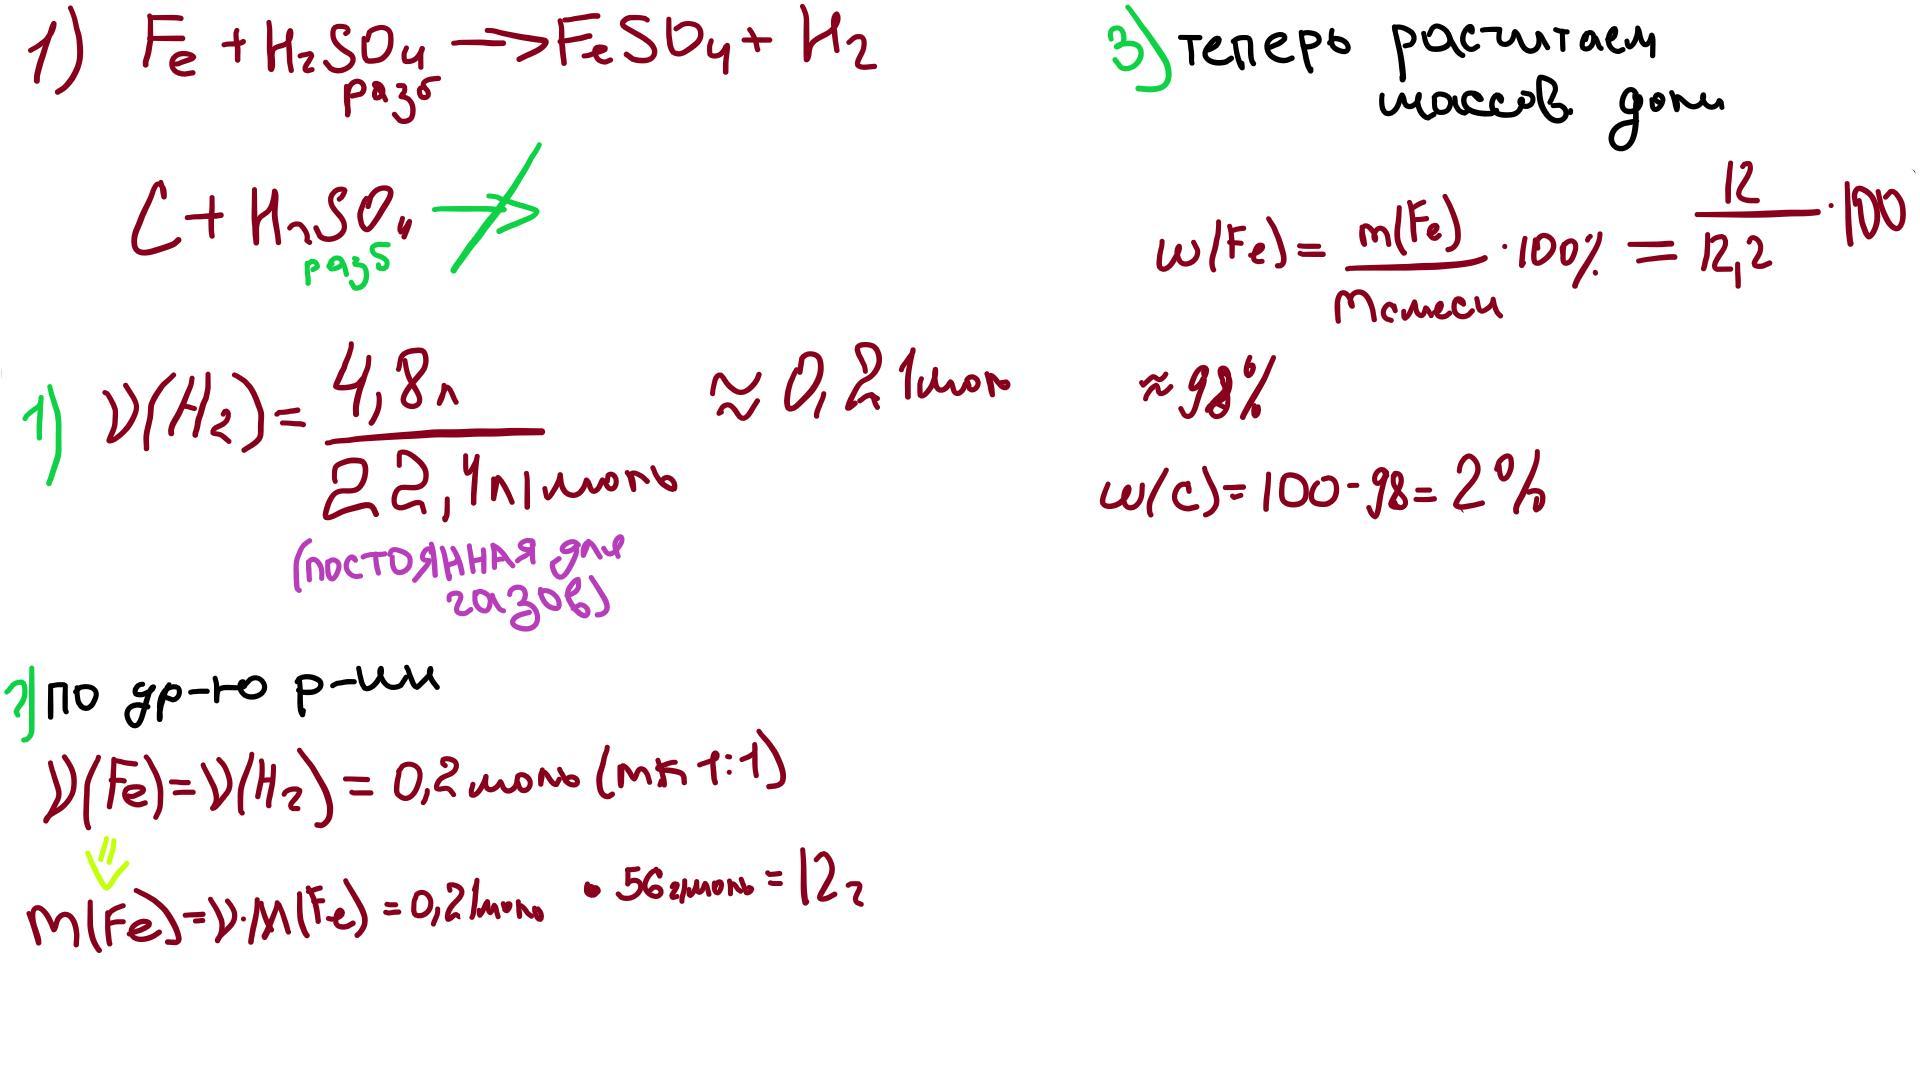 1) Fe + H2SO4 → FeSO4 + H2
разб
C + H2SO4 →
разб
1) ν(H2) = 4,8л / 22,4л/моль ≈ 0,21моль
(постоянная для
газов)
2) по ур-ю р-ции
ν(Fe) = ν(H2) = 0,2моль (тк 1:1)
m(Fe) = ν·M(Fe) = 0,21моль • 56г/моль = 12г
3) теперь расчитаем
массов. доли
w(Fe) = m(Fe) / mсмеси · 100% = 12 / 12,2 · 100
≈ 98%
w(C) = 100 - 98 = 2%